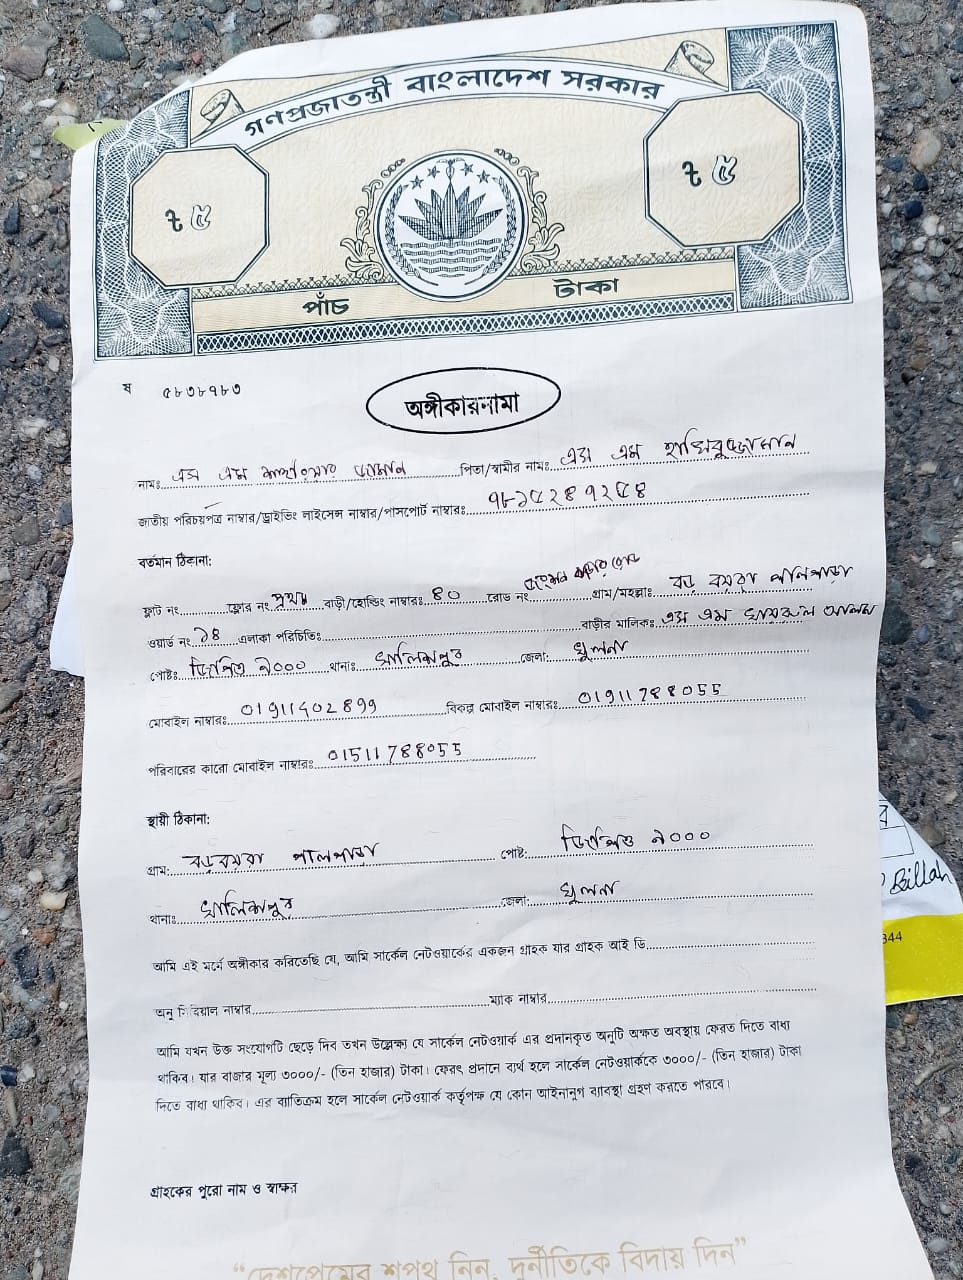 গণপ্রজাতন্ত্রী বাংলাদেশ সরকার
৳ ৫
৳ ৫
পাঁচ টাকা
ষ ৫৮৩৮৭৮৩
অঙ্গীকারনামা
নামঃ এস এম জামান পিতা/স্বামীর নামঃ এস এম হাফিবুজ্জামান
জাতীয় পরিচয়পত্র নাম্বার/ড্রাইভিং লাইসেন্স নাম্বার/পাসপোর্ট নাম্বারঃ ৭৮১৫২৪৭২৫৪
বর্তমান ঠিকানা:
ফ্লাট নং ফ্লোর নং প্রথম বাড়ী/হোল্ডিং নাম্বারঃ ৪০ রোড নং বাজার রোড গ্রাম/মহল্লাঃ বড় বয়রা পালপাড়া
ওয়ার্ড নং ১৪ এলাকা পরিচিতিঃ বাড়ীর মালিকঃ এস এম খায়রুল আলম
পোষ্টঃ জিপিও ৯০০০ থানাঃ খালিশপুর জেলা: খুলনা
মোবাইল নাম্বারঃ 01911402899 বিকল্প মোবাইল নাম্বারঃ 01911788055
পরিবারের কারো মোবাইল নাম্বারঃ 01511788055
স্থায়ী ঠিকানা:
গ্রাম: বড় বয়রা পালপাড়া পোষ্ট: জিপিও ৯০০০
থানাঃ খালিশপুর জেলা: খুলনা
আমি এই মর্মে অঙ্গীকার করিতেছি যে, আমি সার্কেল নেটওয়ার্কের একজন গ্রাহক যার গ্রাহক আই ডি
অনু সিরিয়াল নাম্বার ম্যাক নাম্বার
আমি যখন উক্ত সংযোগটি ছেড়ে দিব তখন উল্লেক্ষ্য যে সার্কেল নেটওয়ার্ক এর প্রদানকৃত অনুটি অক্ষত অবস্থায় ফেরত দিতে বাধ্য
থাকিব। যার বাজার মূল্য ৩০০০/- (তিন হাজার) টাকা। ফেরৎ প্রদানে ব্যর্থ হলে সার্কেল নেটওয়ার্ককে ৩০০০/- (তিন হাজার) টাকা
দিতে বাধ্য থাকিব। এর ব্যতিক্রম হলে সার্কেল নেটওয়ার্ক কর্তৃপক্ষ যে কোন আইনানুগ ব্যাবস্থা গ্রহণ করতে পারবে।
গ্রাহকের পুরো নাম ও স্বাক্ষর
“দেশপ্রেমের শপথ নিন, দুর্নীতিকে বিদায় দিন”
Billah
344